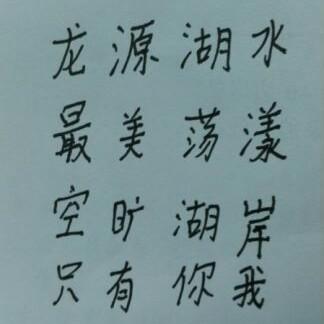 龙源湖水
最美荡漾
空旷湖岸
只有你我